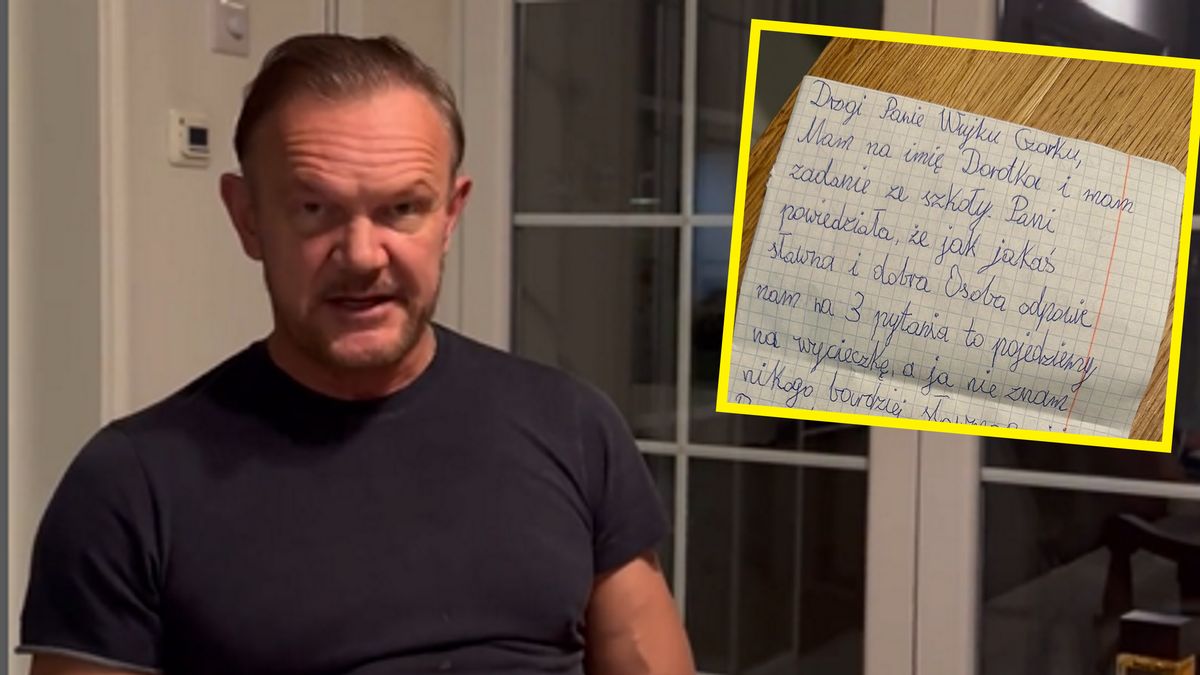 Drogi Panie Wujku Czarku,
Mam na imię Dorotka i mam
zadanie ze szkoły. Pani
powiedziała, że jak jakaś
sławna i dobra Osoba odpowie
nam na 3 pytania to pojedziemy
na wycieczkę, a ja nie znam
nikogo bardziej